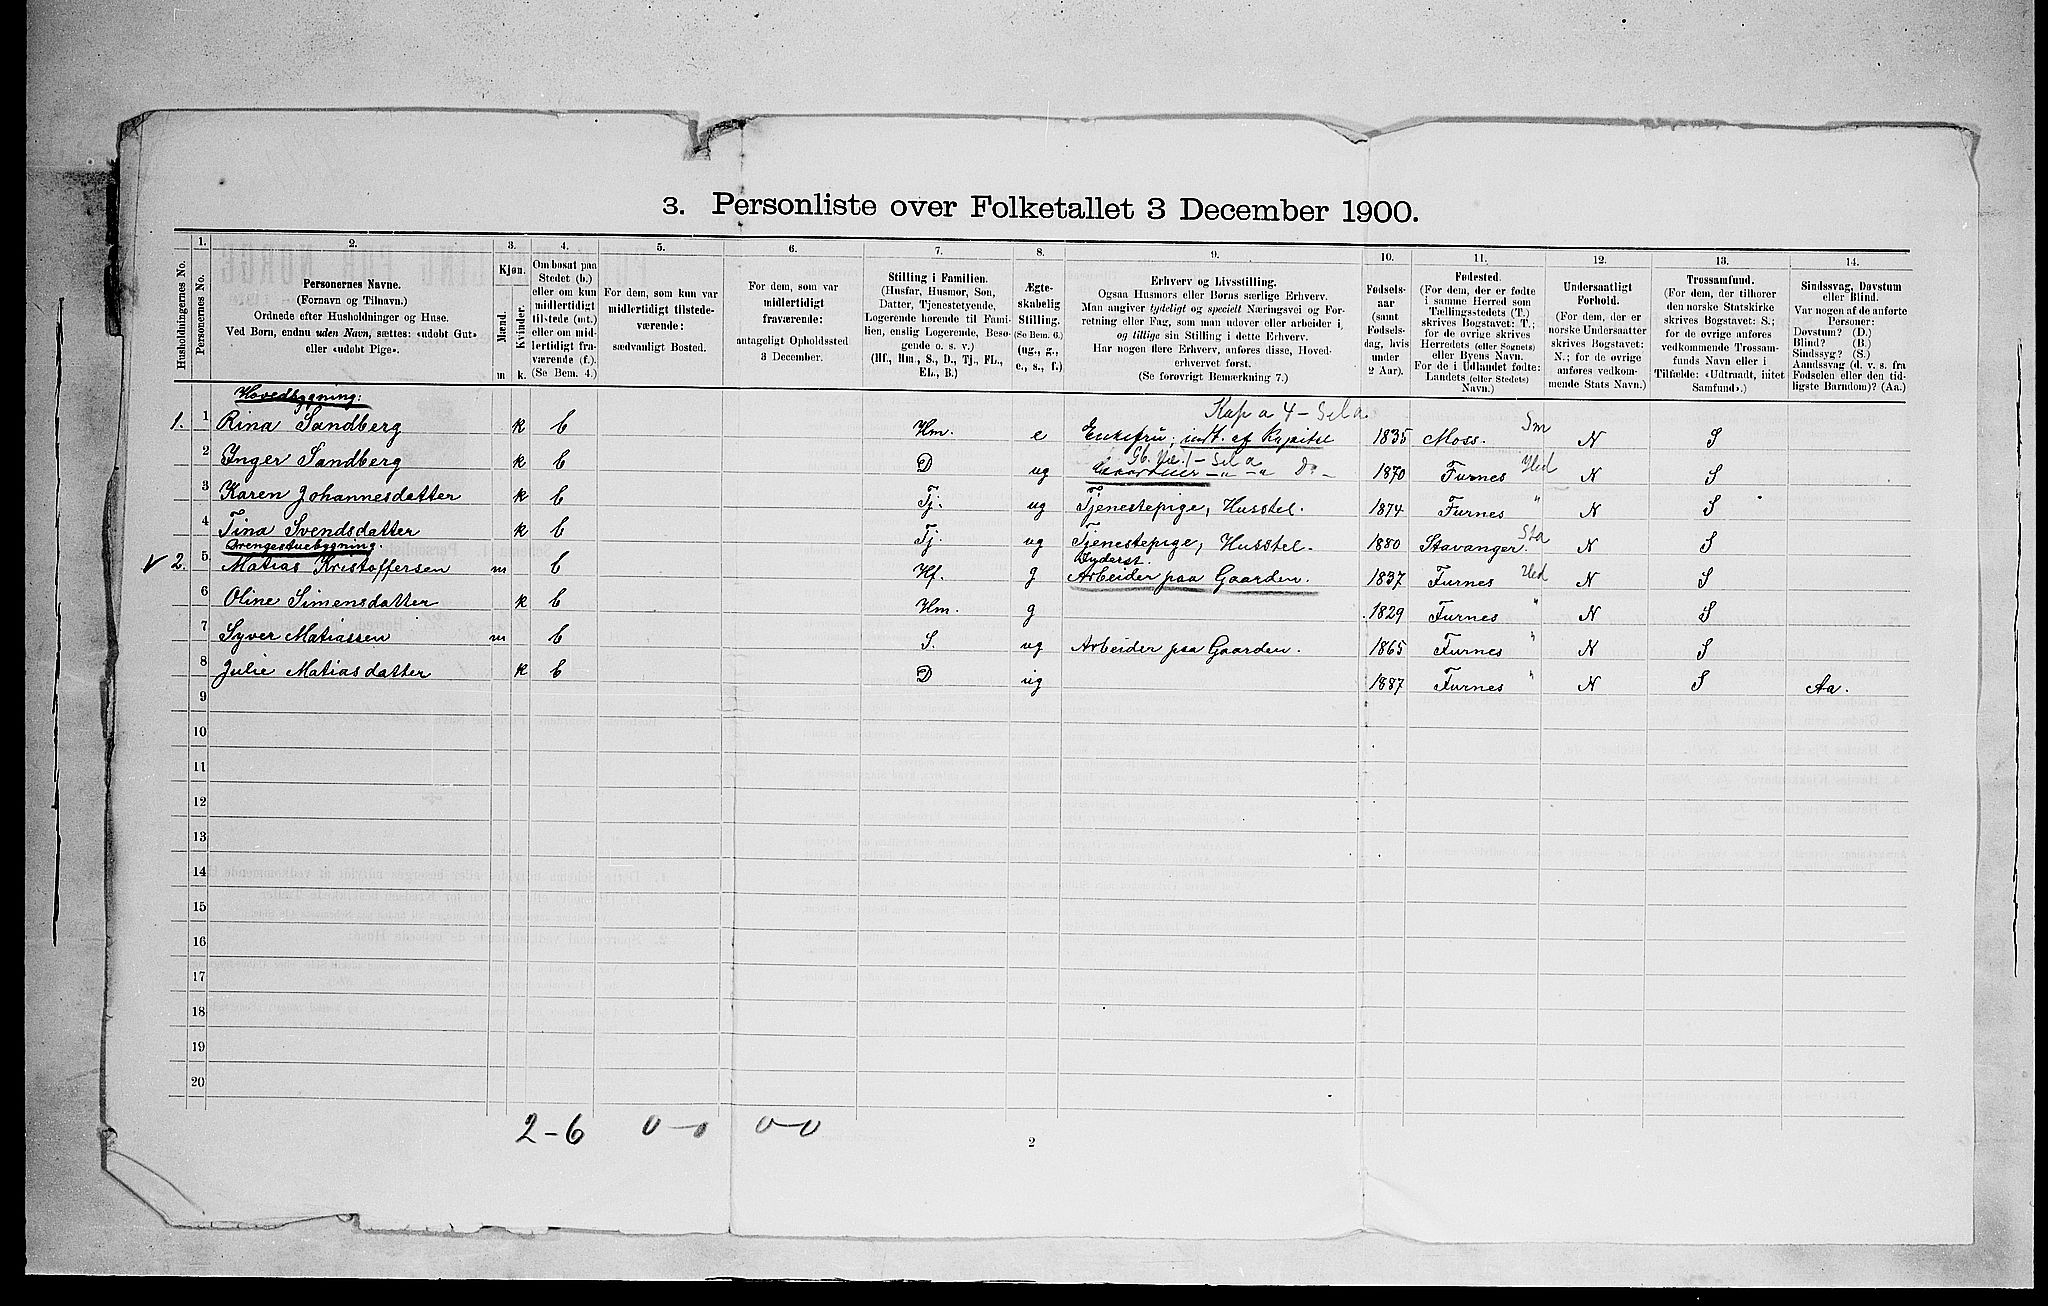 3. Personliste over Folketallet 3 December 1900.
1. 2. 3. 4. 5. 6. 7. 8. 9. 10. 11. 12. 13. 14.
Husholdningernes No.
Personernes No.
Personernes Navne.
(Fornavn og Tilnavn.)
Ordnede efter Husholdninger og Huse.
Ved Børn, endnu uden Navn, sættes: «udøbt Gut»
eller «udøbt Pige».
Kjøn.
Mænd.
Kvinder.
m k.
Om bosat paa
Stedet (b.)
eller om kun
midlertidigt
tilstede (mt.)
eller om mid-
lertidigt fra-
værende (f.).
(Se Bem. 4.)
For dem, som kun var
midlertidigt tilstede-
værende:
sædvanligt Bosted.
For dem, som var
midlertidigt
fraværende:
antageligt Opholdssted
3 December.
Stilling i Familien.
(Husfar, Husmor, Søn,
Datter, Tjenestetyende,
Logerende hørende til Fami-
lien, enslig Logerende, Besø-
gende o. s. v.)
(Hf., Hm., S., D., Tj., FL.,
EL., B.)
Ægte-
skabelig
Stilling.
(Se Bem. 6.)
(ug., g.,
e., s., f.)
Erhverv og Livsstilling.
Ogsaa Husmors eller Børns særlige Erhverv.
Man angiver tydeligt og specielt Næringsvei og For-
retning eller Fag, som man udøver eller arbeider i,
og tillige sin Stilling i dette Erhverv.
Har nogen flere Erhverv, anføres disse, Hoved-
erhvervet først.
(Se forøvrigt Bemærkning 7.)
Fødsels-
aar
(samt
Fødsels-
dag, hvis
under
2 Aar).
Fødested.
(For dem, der er fødte
i samme Herred som
Tællingsstedets (T.)
skrives Bogstavet: T.;
for de øvrige skrives
Herredets (eller Sognets)
eller Byens Navn.
For de i Udlandet fødte:
Landets (eller Stedets)
Navn.)
Undersaatligt
Forhold.
(For dem, der er
norske Undersaatter
skrives Bogstavet:
N.; for de øvrige
anføres vedkom-
mende Stats Navn.)
Trossamfund.
(For dem, der tilhører
den norske Statskirke
skrives Bogstavet: S.;
for de øvrige anføres
vedkommende Trossam-
funds Navn eller i
Tilfælde: «Udtraadt, intet
Samfund.»)
Sindssvag, Døvstum
eller Blind.
Var nogen af de anførte
Personer:
Døvstum? (D.)
Blind? (B.)
Sindssyg? (S.)
Aandssvag (d. v. s. fra
Fødselen eller den tid-
ligste Barndom)? (Aa.)
Hovedbygning:
Kap a 4 - Sela
1. 1 Rina Sandberg k b Hm. e Enkefru, indt. af Kapital 1835 Moss. Sm N S
2 Inger Sandberg k b D ug Do 1870 Furnes Hed N S
3 Karen Johannesdatter k b Tj. ug Tjenestepige, Husstel. 1874 Furnes " N S
4 Tina Svendsdatter k b Tj. ug Tjenestepige, Husstel. 1880 Stavanger. Sta N S
Drengestuebygning.
2. 5 Matias Kristoffersen m b Hf. g Arbeider paa Gaarden. 1837 Furnes Hed N S
6 Oline Simensdatter k b Hm. g 1829 Furnes " N S
7 Syver Matiassen m b S. ug Arbeider paa Gaarden. 1865 Furnes " N S
8 Julie Matiasdatter k b D ug 1887 Furnes " N S Aa.
9
10
11
12
13
14
15
16
17
18
19
20
2-6 0-1 0-0
2